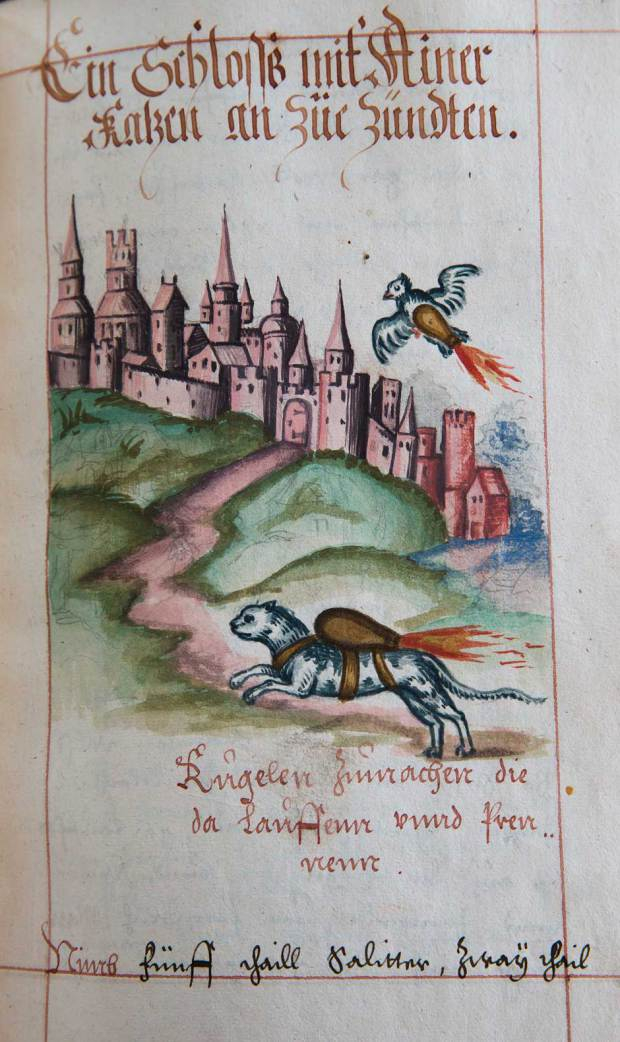 Ein Schloss mit Ainer
Katzen an züe zündten.
Kugelen zumachen die
da Lauffenn vnnd Pren¨
nenn.
Nimb fünff thaill Salitter, Zway thail